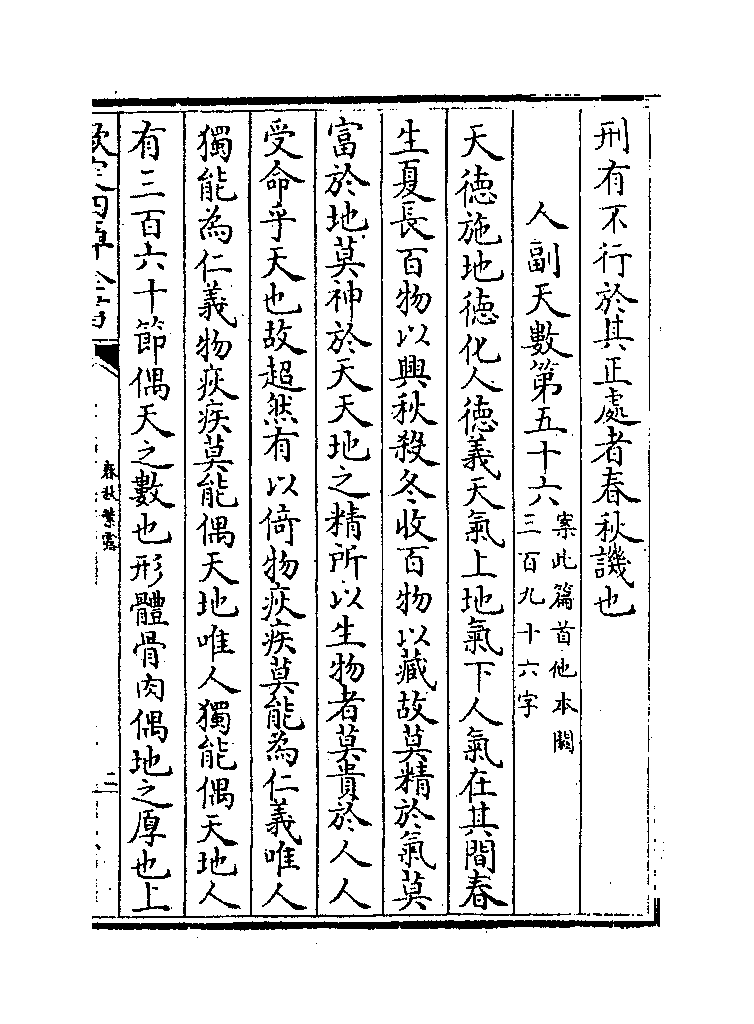 刑有不行於其正處者春秋譏也
人副天數第五十六案此篇首他本闕
三百九十六字
天徳施地徳化人徳義天氣上地氣下人氣在其間春
生夏長百物以興秋殺冬收百物以藏故莫精於氣莫
富於地莫神於天天地之精所以生物者莫貴於人人
受命乎天也故超然有以倚物疢疾莫能為仁義唯人
獨能為仁義物疢疾莫能偶天地唯人獨能偶天地人
有三百六十節偶天之數也形體骨肉偶地之厚也上
春秋繁露
二